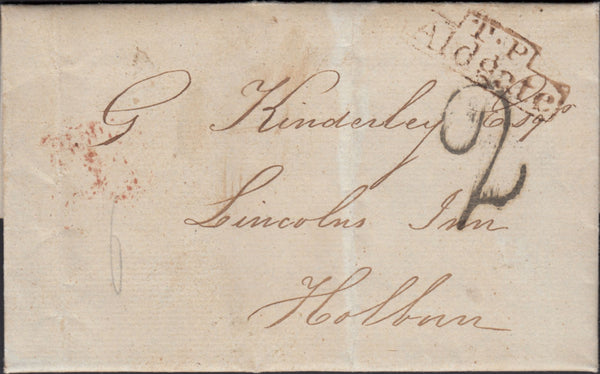 T.P
Aldgate
G Kinderley Esqr
2
Lincolns Inn
Holborn